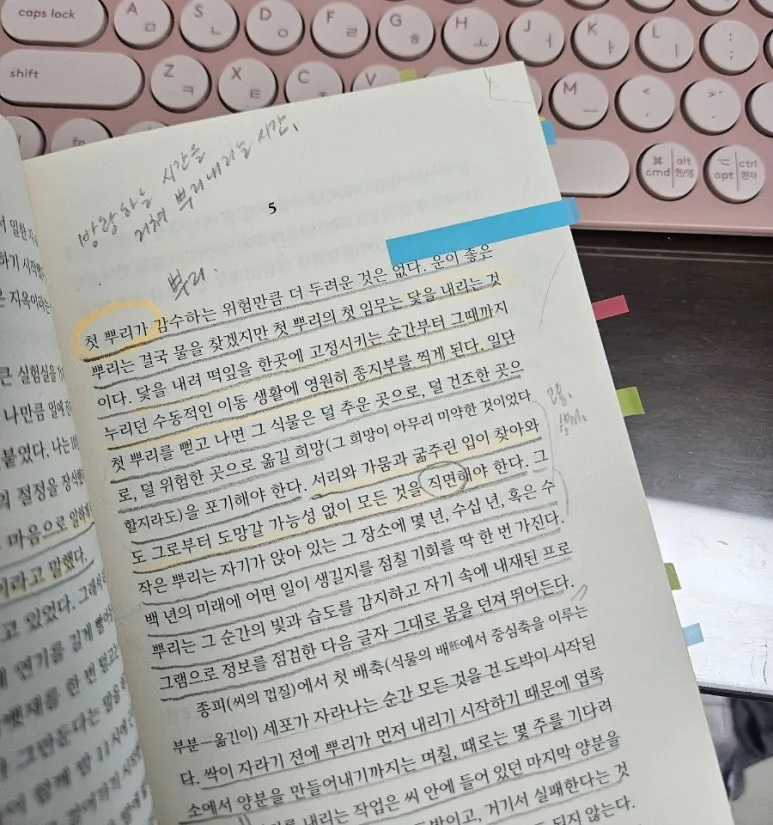 caps lock
A ㅁ
S ㄴ
D ㅇ
F ㄹ
G ㅎ
H ㅗ
J ㅓ
K ㅏ
L ㅣ
: ;
shift
Z ㅋ
X ㅌ
C ㅊ
V
M ㅡ
< ,
> .
fn
⌘ cmd alt 한/영
⌥ opt ctrl 한자
방랑하는 시간을
거쳐 뿌리내리는 시간.
5
뿌리.
첫 뿌리가 감수하는 위험만큼 더 두려운 것은 없다. 운이 좋은
뿌리는 결국 물을 찾겠지만 첫 뿌리의 첫 임무는 닻을 내리는 것
이다. 닻을 내려 떡잎을 한곳에 고정시키는 순간부터 그때까지
누리던 수동적인 이동 생활에 영원히 종지부를 찍게 된다. 일단
첫 뿌리를 뻗고 나면 그 식물은 덜 추운 곳으로, 덜 건조한 곳으
로, 덜 위험한 곳으로 옮길 희망(그 희망이 아무리 미약한 것이었다
할지라도)을 포기해야 한다. 서리와 가뭄과 굶주린 입이 찾아와
도 그로부터 도망갈 가능성 없이 모든 것을 직면해야 한다. 그
작은 뿌리는 자기가 앉아 있는 그 장소에 몇 년, 수십 년, 혹은 수
백 년의 미래에 어떤 일이 생길지를 점칠 기회를 딱 한 번 가진다.
뿌리는 그 순간의 빛과 습도를 감지하고 자기 속에 내재된 프로
그램으로 정보를 점검한 다음 글자 그대로 몸을 던져 뛰어든다.
종피(씨의 껍질)에서 첫 배축(식물의 배胚에서 중심축을 이루는
부분—옮긴이) 세포가 자라나는 순간 모든 것을 건 도박이 시작된
다. 싹이 자라기 전에 뿌리가 먼저 내리기 시작하기 때문에 엽록
소에서 양분을 만들어내기까지는 며칠, 때로는 몇 주를 기다려
내리는 작업은 씨 안에 들어 있던 마지막 양분을
도박이고, 거기서 실패한다는 것
되지 않는다.